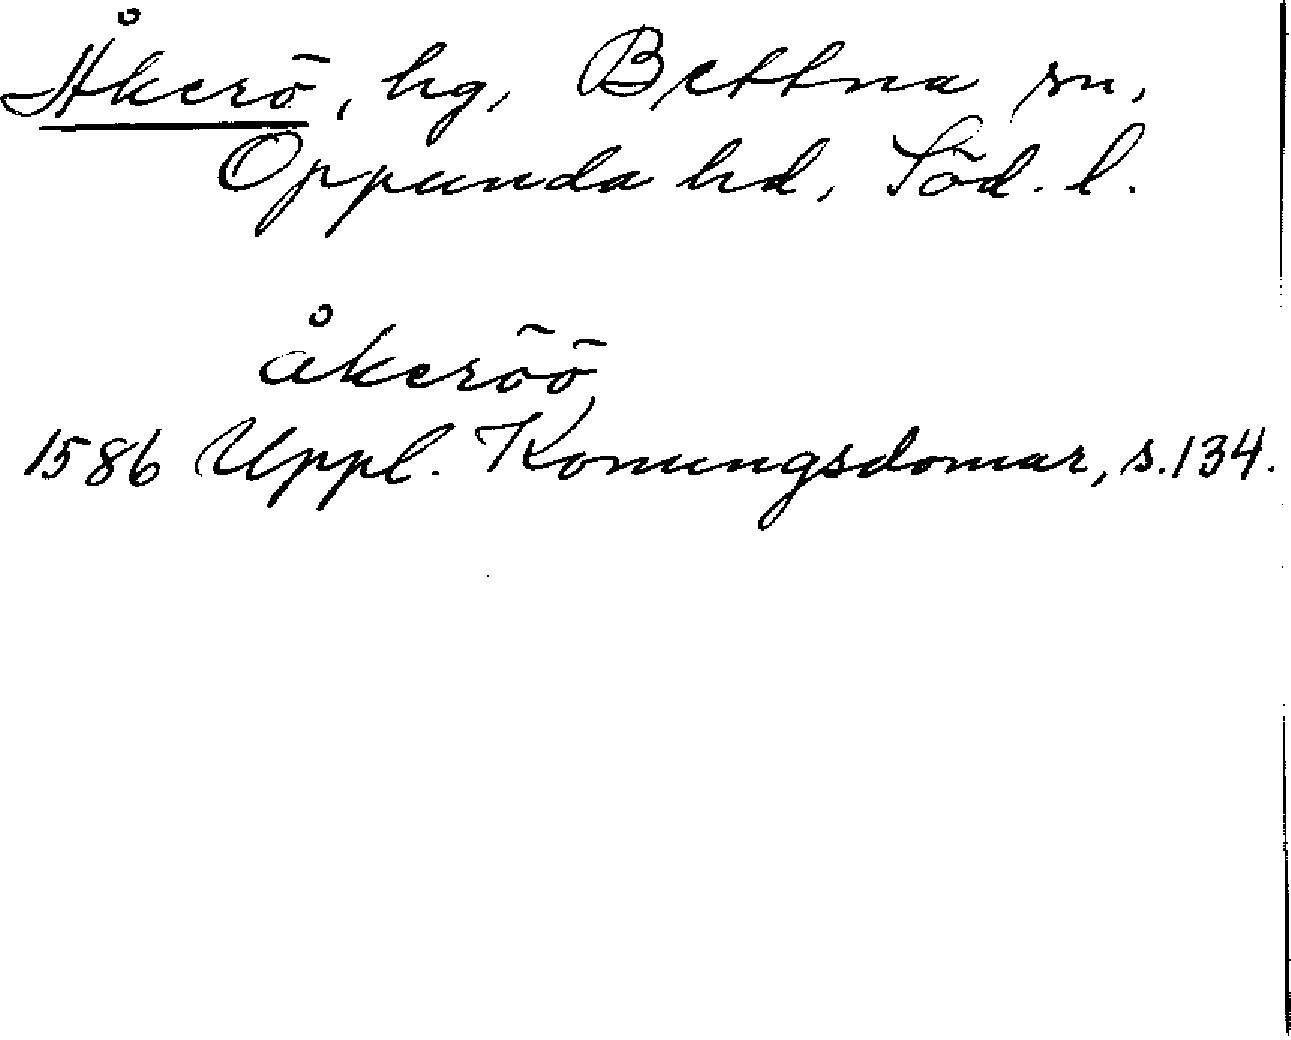 Åkerö, hg, Bettna sn,
Oppunda hd, Söd. l.
åkeröö
1586 Uppl. Konungsdomar, s. 134.